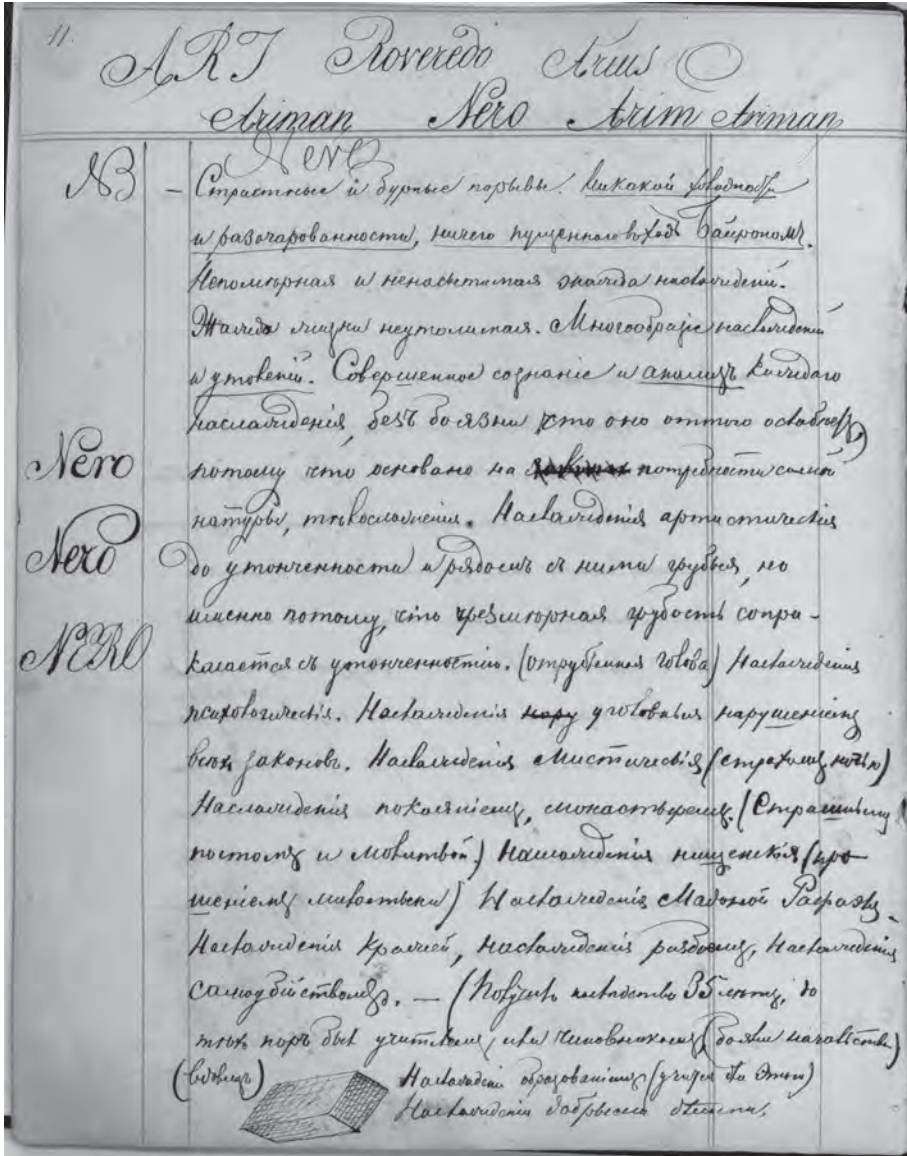 11.
ART Roveredo Arius
Ariman Nero Arim Ariman
Nero
NB – Страстные и бурные порывы. Никакой холодности
и разочарованности, ничего пущеннаго въ ходъ Байрономъ.
Непомѣрная и ненасытимая жажда наслажденій.
Жажда жизни неутолимая. Многообразіе наслажденій
и утоленій. Совершенное сознаніе и анализъ каждаго
наслажденія, безъ боязни что оно оттого ослабнетъ,
Nero
потому что основано на потребности самой
натуры, тѣлосложенія. Наслажденія артистическія
Nero
до утонченности и рядомъ съ ними грубыя, но
именно потому, что чрезмѣрная грубость сопри-
NERO
касается съ утонченностію. (отрубленная голова) Наслажденія
психологическія. Наслажденія нару уголовныя нарушеніемъ
всѣхъ законовъ. Наслажденія мистическія (страхомъ ночью)
Наслажденія покаяніемъ, монастыремъ. (Страшнымъ
постомъ и молитвой.) Наслажденія нищенскія (про-
шеніемъ милостыни) Наслажденія Мадоной Рафаэля.
Наслажденія кражей, наслажденія разбоемъ, наслажденія
самоубійствомъ. – (Получилъ наслѣдство 35 лѣтъ, до
тѣхъ поръ былъ учителемъ, или чиновникомъ, (боялся начальства)
(вдовецъ) Наслажденія образованіемъ (учится для этого)
Наслажденія добрыми дѣлами.